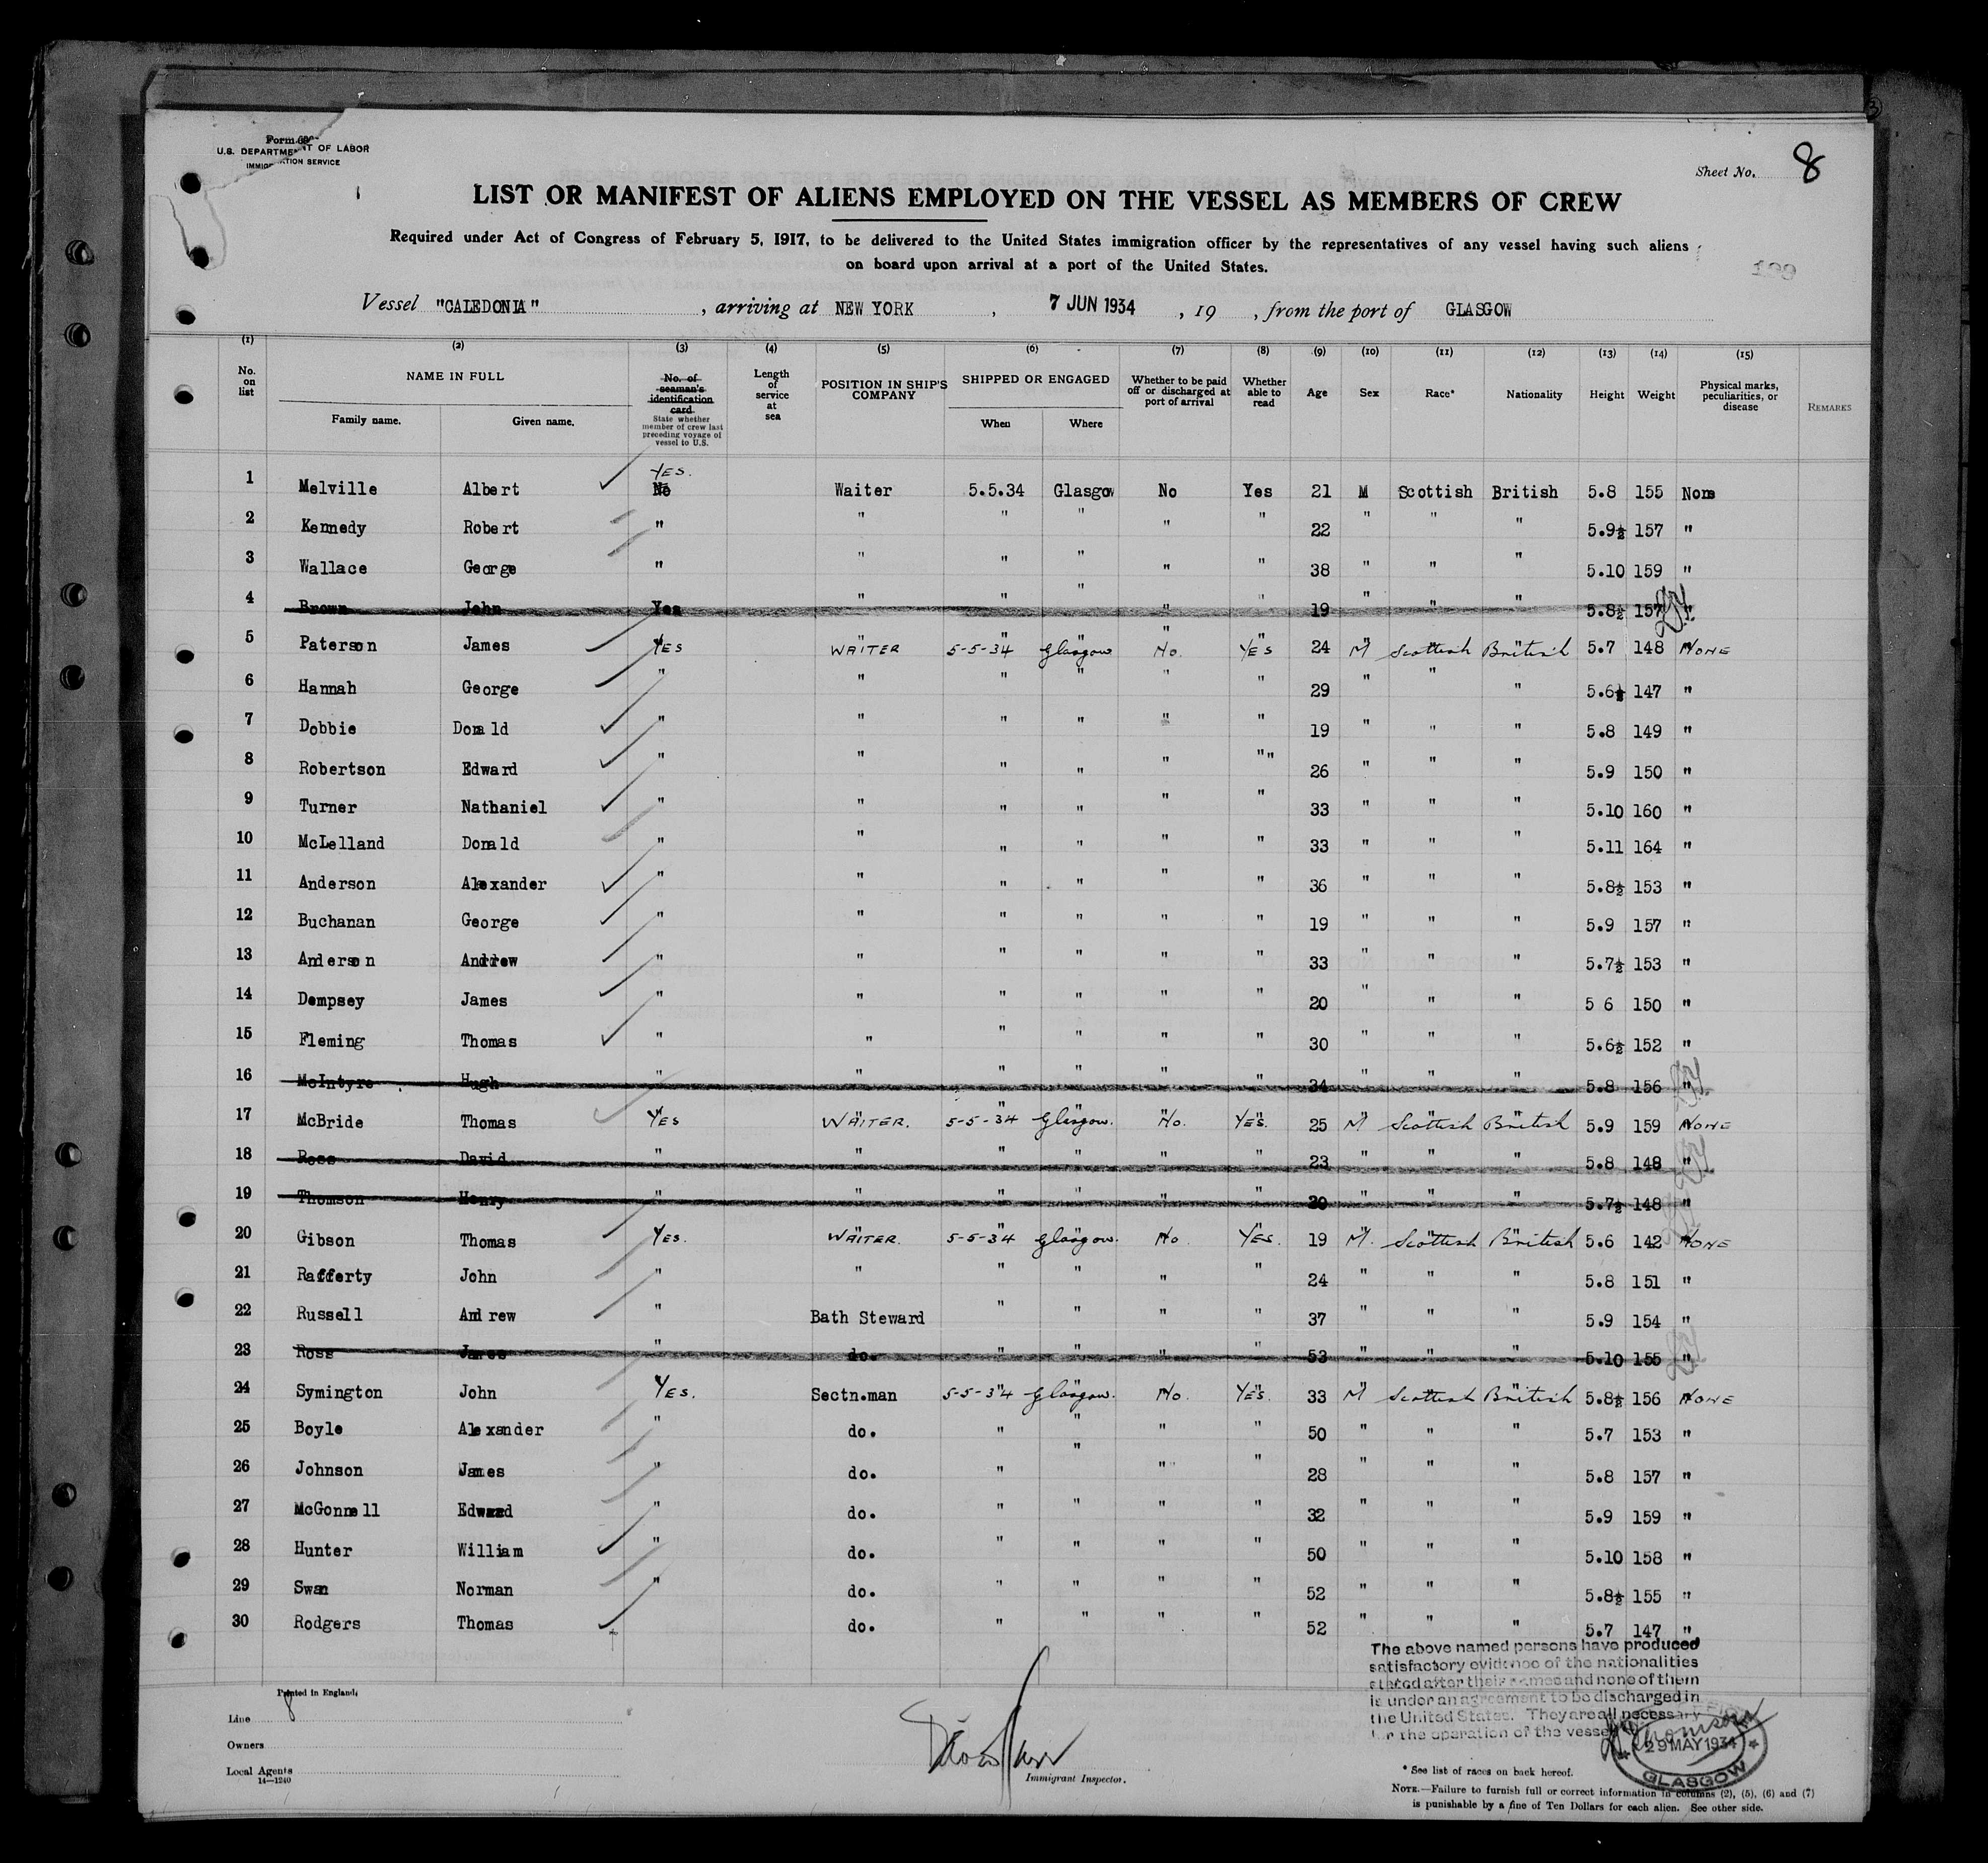 Form 689
U.S. DEPARTMENT OF LABOR
IMMIGRATION SERVICE
Sheet No. 8
LIST OR MANIFEST OF ALIENS EMPLOYED ON THE VESSEL AS MEMBERS OF CREW
Required under Act of Congress of February 5, 1917, to be delivered to the United States immigration officer by the representatives of any vessel having such aliens
on board upon arrival at a port of the United States.
199
Vessel "CALEDONIA" , arriving at NEW YORK , 7 JUN 1934 , 19 , from the port of GLASGOW
(1) (2) (3) (4) (5) (6) (7) (8) (9) (10) (11) (12) (13) (14) (15)
No. on list NAME IN FULL Family name. Given name. No. of seaman's identification card. State whether member of crew last preceding voyage of vessel to U.S. Length of service at sea POSITION IN SHIP'S COMPANY SHIPPED OR ENGAGED When Where Whether to be paid off or discharged at port of arrival Whether able to read Age Sex Race* Nationality Height Weight Physical marks, peculiarities, or disease REMARKS
YES.
1 Melville Albert No Waiter 5.5.34 Glasgow No Yes 21 M Scottish British 5.8 155 None
2 Kennedy Robert " " " " " " 22 " " " 5.9½ 157 "
3 Wallace George " " " " " " 38 " " " 5.10 159 "
4 Brown John Yes " " " " " 19 " " " 5.8½ 157 "
5 Paterson James YES WAITER 5-5-34 Glasgow No. YES 24 M Scottish British 5.7 148 NONE
6 Hannah George " " " " " " 29 " " " 5.6½ 147 "
7 Dobbie Donald " " " " " " 19 " " " 5.8 149 "
8 Robertson Edward " " " " " "" 26 " " " 5.9 150 "
9 Turner Nathaniel " " " " " " 33 " " " 5.10 160 "
10 McLelland Donald " " " " " " 33 " " " 5.11 164 "
11 Anderson Alexander " " " " " " 36 " " " 5.8½ 153 "
12 Buchanan George " " " " " " 19 " " " 5.9 157 "
13 Anderson Andrew " " " " " " 33 " " " 5.7½ 153 "
14 Dempsey James " " " " " " 20 " " " 5 6 150 "
15 Fleming Thomas " " " " " " 30 " " " 5.6½ 152 "
16 McIntyre Hugh " " " " " " 34 " " " 5.8 156 "
17 McBride Thomas YES WAITER. 5-5-34 Glasgow. No. YES. 25 M Scottish British 5.9 159 NONE
18 Ross David " " " " " " 23 " " " 5.8 148 "
19 Thomson Henry " " " " " " 20 " " " 5.7½ 148 "
20 Gibson Thomas YES. WAITER. 5-5-34 Glasgow. No. YES. 19 M. Scottish British 5.6 142 NONE
21 Rafferty John " " " " " " 24 " " " 5.8 151 "
22 Russell Andrew " Bath Steward " " " " 37 " " " 5.9 154 "
23 Ross James " do. " " " " 53 " " " 5.10 155 "
24 Symington John YES. Sectn.man 5-5-34 Glasgow. No. YES. 33 M Scottish British 5.8½ 156 NONE
25 Boyle Alexander " do. " " " " 50 " " " 5.7 153 "
26 Johnson James " do. " " " " 28 " " " 5.8 157 "
27 McGonnell Edward " do. " " " " 32 " " " 5.9 159 "
28 Hunter William " do. " " " " 50 " " " 5.10 158 "
29 Swan Norman " do. " " " " 52 " " " 5.8½ 155 "
30 Rodgers Thomas do. " " " " 52 " " " 5.7 147 "
The above named persons have produced
satisfactory evidence of the nationalities
stated after their names and none of them
is under an agreement to be discharged in
the United States. They are all necessary
for the operation of the vessel
Thomson
29 MAY 1934
GLASGOW
Printed in England.
Line
Owners
Local Agents
14—1240
Immigrant Inspector.
* See list of races on back hereof.
NOTE.—Failure to furnish full or correct information in columns (2), (5), (6) and (7)
is punishable by a fine of Ten Dollars for each alien. See other side.